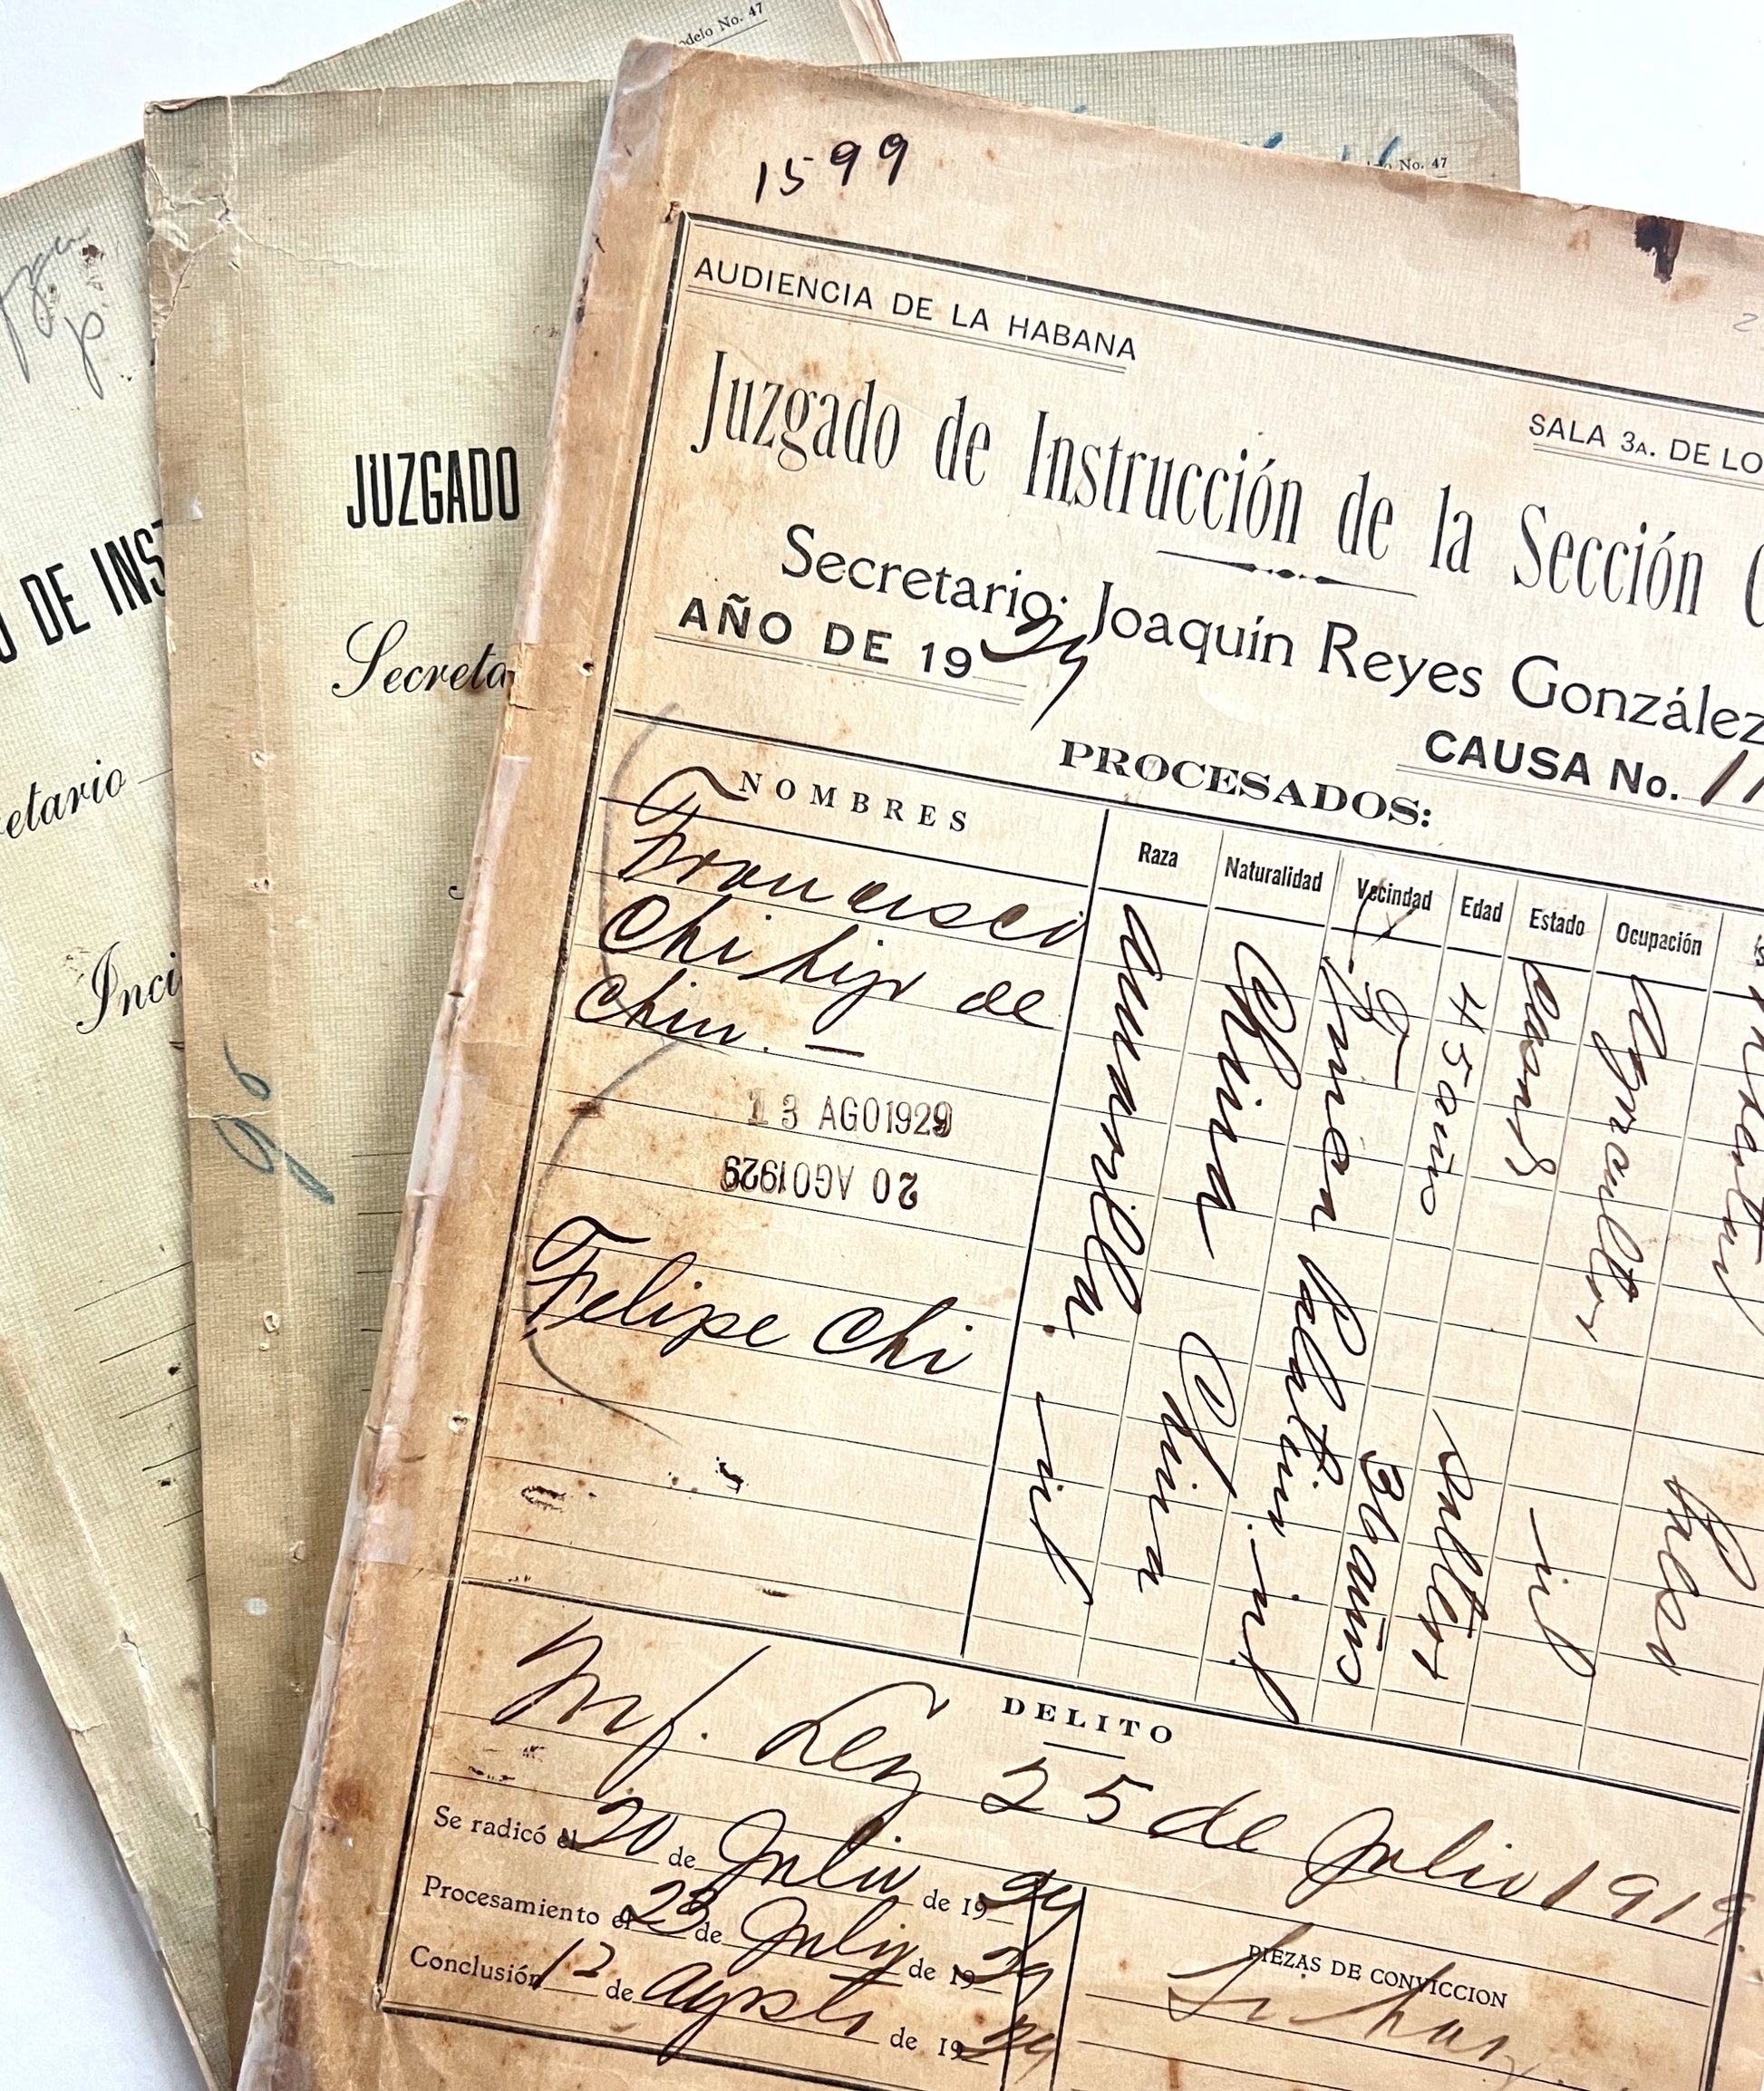 delo No. 47
No. 47
1599
AUDIENCIA DE LA HABANA
SALA 3A. DE LO
Juzgado de Instrucción de la Sección
Secretario: Joaquín Reyes González
AÑO DE 1929
CAUSA No. 11
PROCESADOS:
NOMBRES Raza Naturalidad Vecindad Edad Estado Ocupación
Francisco
Chi hijo de
Chin. —
amarilla.
China
45 años
agricultor
13 AGO1929
20 AGO1929
Felipe Chi
id
China
id
31 años
soltero
id
DELITO
Inf. Ley 25 de Julio 1919
Se radicó el 20 de Julio de 1929
Procesamiento el 23 de Julio de 1929
Conclusión 12 de Agosto de 1929
PIEZAS DE CONVICCION
Si hay
JUZGADO
Secreta
96
O DE INST
retario
Inci